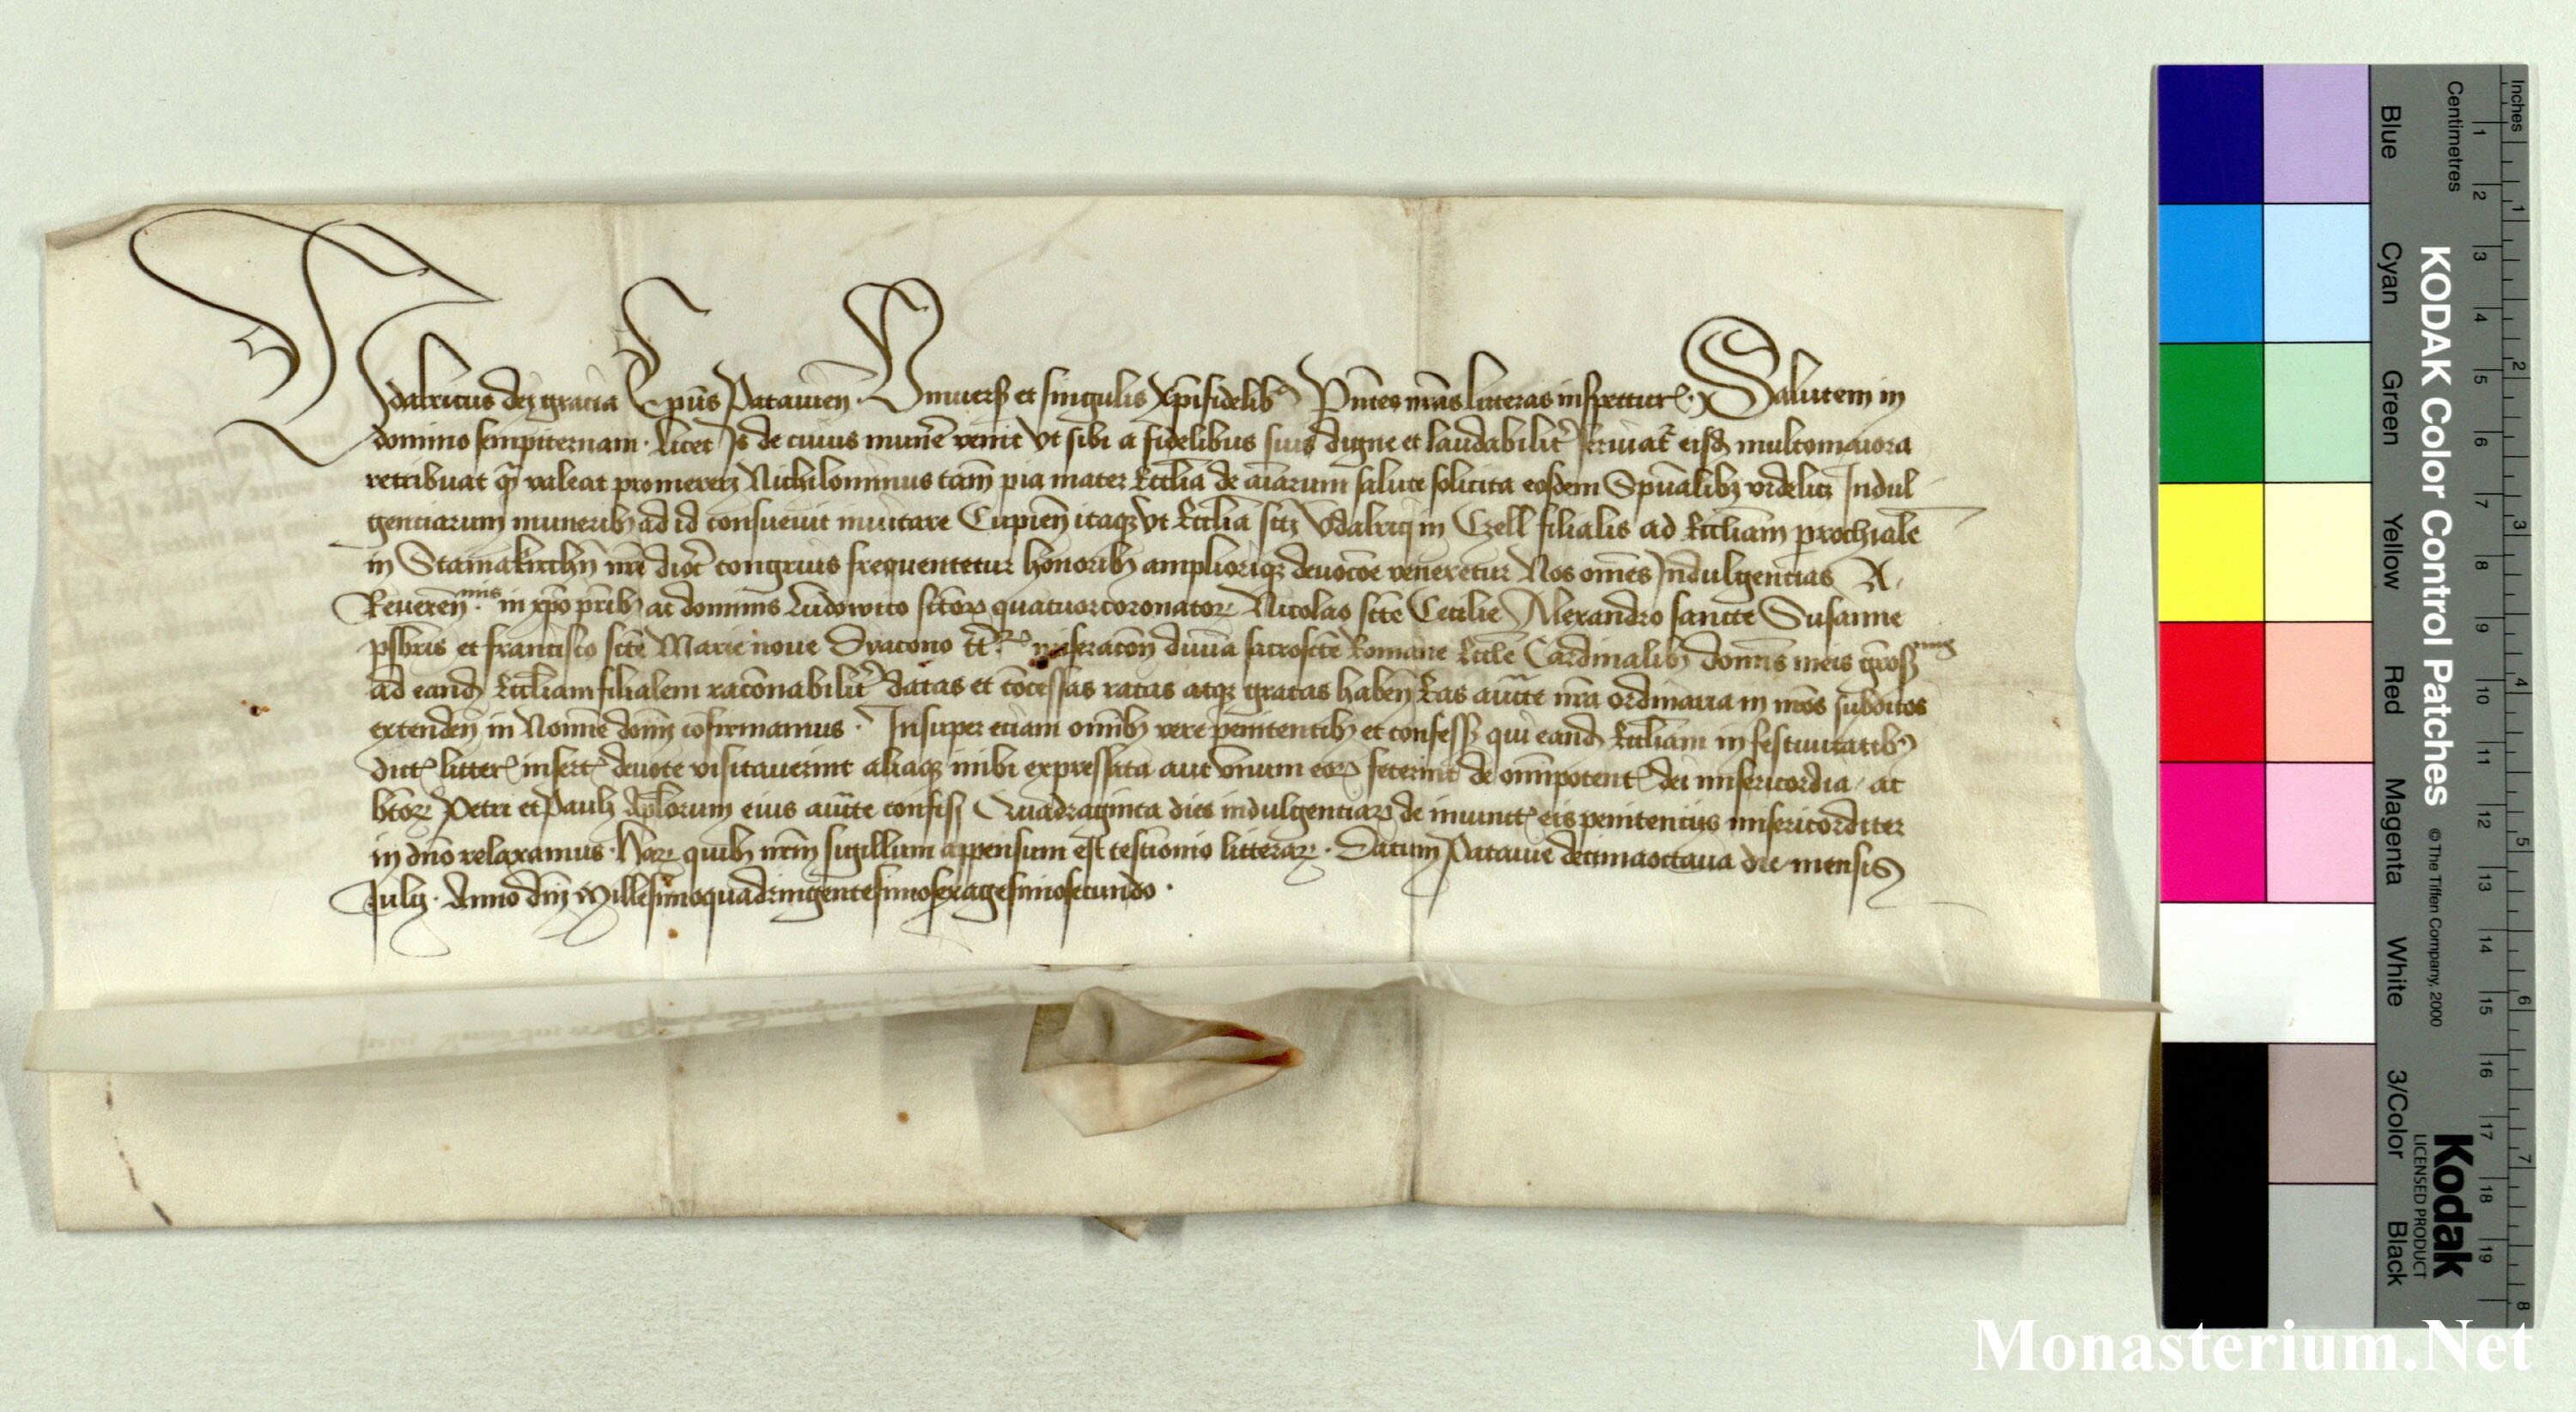 Udalricus dei gracia Ep̄us Patauien̄. Vniuersis et singulis Xp̄ifidelib9 Pn̄tes nr̄as litteras inspecturis. Salutem in
domino sempiternam. Licet Is de cuius mun̄e venit Vt sibi a fidelibus suis digne et laudabilit̄ seruiat̄ eisd̄ multomaiora
retribuat qm̄ valeat promereri Nichilominus tam̄ pia mater Eccl̄ia de aīarum salute solicita eosdem Spūalibꝫ videlicꝫ Indul
gentiarum muneribꝫ ad id consueuit inuitare Cupien̄ itaqꝫ Vt Eccl̄ia scī Vdalrici in Czell filialis ad Eccl̄iam parochiale
in Stamakirchn̄ nr̄e dioc̄ congruis frequentetur honoribꝫ amplioriqꝫ deuoc̄oe veneretur Nos om̄es Indulgentias A
Reueren̄.mis in xp̄o pr̄ibꝫ ac domin̄is Ludowico sctōꝝ quatuorcoronatoꝝ Nicolao sctē Cecilie Alexandro sancte Susanne
psb̄ris et francisco sctē Marie noue Dyacono miserac̄on diuīa sacrosctē Romane Eccl̄e Cardinalibꝫ domīs meis gr̄osismis
ad eand̄ Eccl̄iam filialem rac̄onabilit̄ datas et cōcessas ratas atqꝫ gratas haben̄ Eas auc̄te nr̄a ordinaria in nr̄os subditos
extenden̄ in Nomīe domī cōfirmamus. Insuper etiam om̄ibꝫ vere penitentibꝫ et confessis qui eand̄ Eccl̄iam in festiuitatib9
dict̄ litter̄ insert̄ deuote visitauerint aliaqꝫ inibi expressata aut Vnum eoꝝ fecerint de om̄ipotent̄ dei misericordia ac
bt̄oꝝ Petri et Pauli Apl̄orum eius auc̄te confisi Quadraginta dies indulgentiaꝝ de iniunct̄ eis penitentijs misericorditer
in dn̄o relaxamus. Haꝝ quibꝫ nr̄m sigillum appensum est testīonio litteraꝝ. Datum Patauie decimaoctaua die mensis
Iulij. Anno dn̄i Millesimoquadringentesimosexagesimosecundo.
Inches
Centimetres
1 2 3 4 5 6 7 8
1 2 3 4 5 6 7 8 9 10 11 12 13 14 15 16 17 18 19
KODAK Color Control Patches © The Tiffen Company, 2000
Kodak
LICENSED PRODUCT
Blue Cyan Green Yellow Red Magenta White 3/Color Black
Monasterium.Net